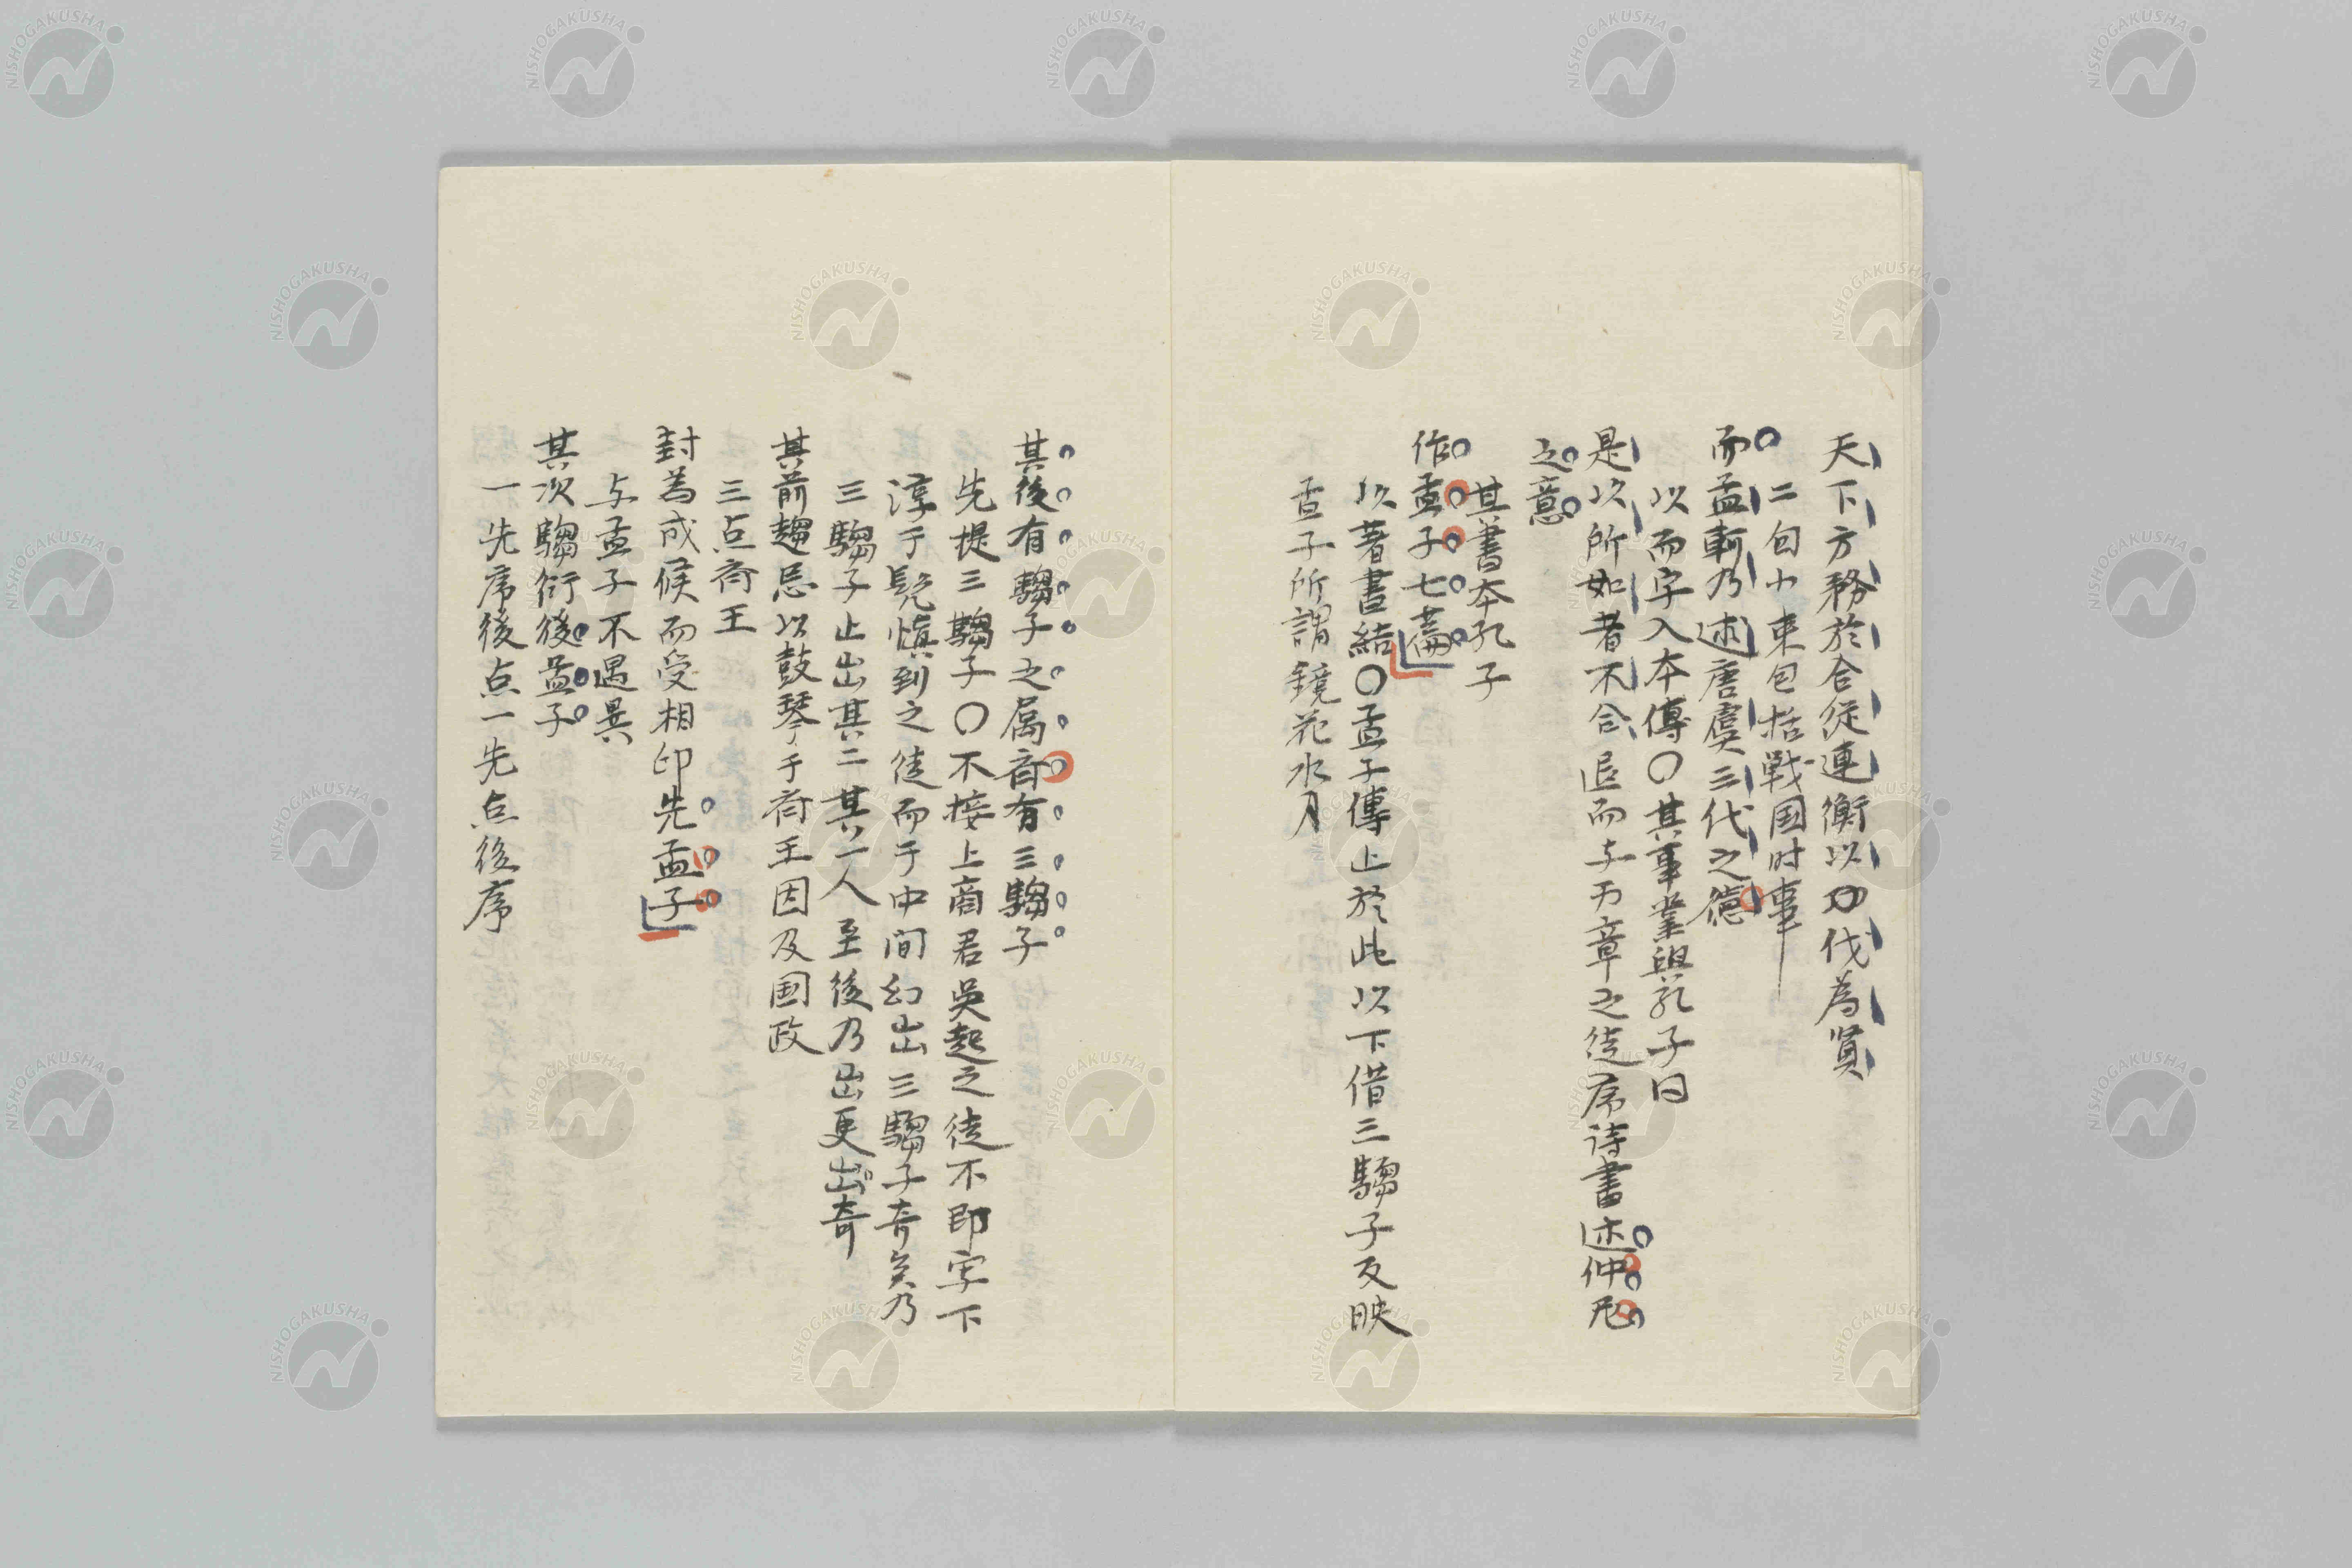 天下方務於合従連衡以功伐為賢
二句小束包括戦国时事
而孟軻乃述唐虞三代之德
以而字入本傳〇其事業與孔子同
是以所如者不合退而与万章之徒序诗書述仲尼
之意
其書本孔子
作孟子七篇
以著書結〇孟子傳止於此以下借三騶子反映
孟子所謂鏡花水月
其後有騶子之属齐有三騶子
先提三騶子〇不接上商君吳起之徒不即字下
淳于髡慎到之徒而于中间幻出三騶子奇矣乃
三騶子止出其二其一人至後乃出更出奇
其前騶忌以鼓琴于齐王因及国政
三点齐王
封為成候而受相印先孟子
与孟子不遇異
其次騶衍後孟子
一先序後点一先点後序
NISHOGAKUSHA